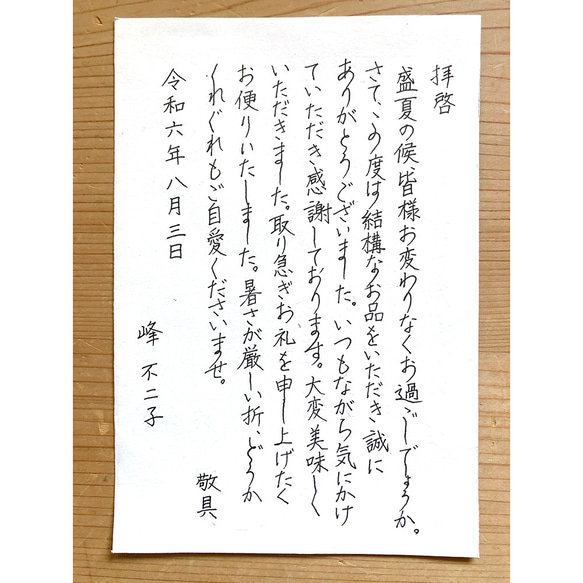 拝啓
盛夏の候、皆様お変わりなくお過ごしでしょうか。
さて、この度は結構なお品をいただき誠に
ありがとうございました。いつもながら気にかけ
ていただき感謝しております。大変美味しく
いただきました。取り急ぎお礼を申し上げたく
お便りいたしました。暑さが厳しい折、どうか
くれぐれもご自愛くださいませ。
敬具
令和六年八月三日
峰不二子